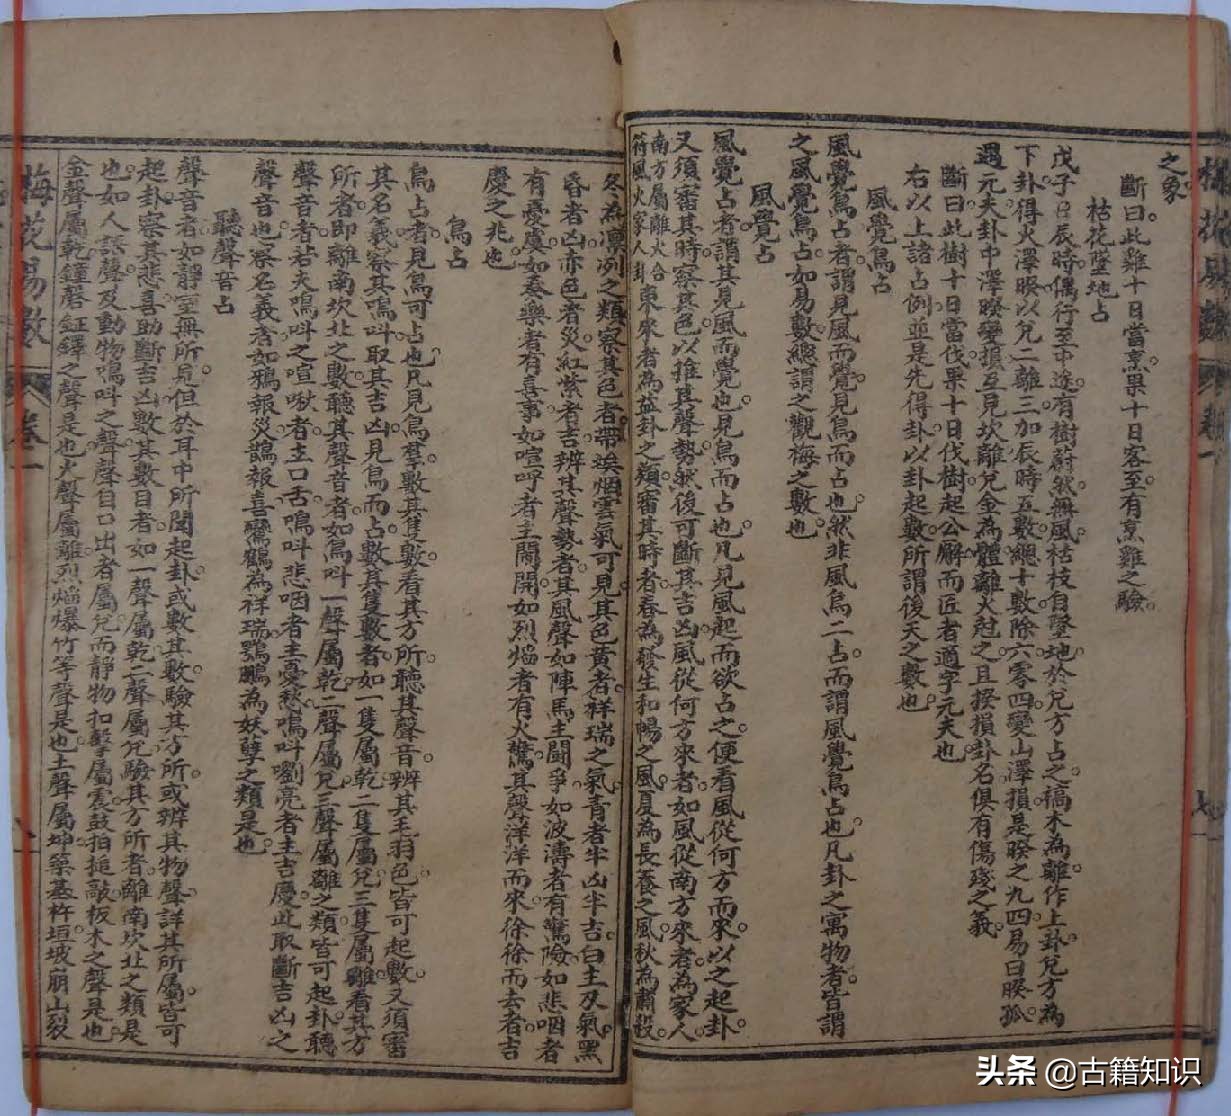 之象
斷曰此雞十日當烹果十日客至有烹雞之驗
枯花墜地占
戊子日辰時偶行至中途有樹蔚然無風枯枝自墜地於兌方占之槁木為離作上卦兌方為
下卦得火澤睽以兌二離三加辰時五數總十數除六零四變山澤損是睽之九四易曰睽孤
遇元夫卦中澤睽變損互見坎離兌金為體離火尅之且揆損卦名俱有傷殘之義
斷曰此樹十日當伐果十日伐樹起公廨而匠者適字元夫也
右以上諸占例並是先得卦以卦起數所謂後天之數也
風覺鳥占
風覺鳥占者謂見風而覺見鳥而占也然非風鳥二占而謂風覺鳥占也凡卦之寓物者皆謂
之風覺鳥占如易數總謂之觀梅之數也
風覺占
風覺占者謂其見風而覺也見鳥而占也凡見風起而欲占之便看風從何方而來以之起卦
又須審其時察其色以推其聲勢然後可斷其吉凶風從何方來者如風從南方來者為家人
南方屬離火合符風火家人卦東來者為益卦之類審其時者春為發生和暢之風夏為長養之風秋為肅殺
冬為凜冽之類察其色者帶埃烟雲氣可見其色黃者祥瑞之氣青者半凶半吉白主刃氣黑
昏者凶赤色者災紅紫者吉辨其聲勢者其風聲如陣馬主鬪爭如波濤者有驚險如悲咽者
有憂虞如奏樂者有喜事如喧呼者主鬧開如烈焰者有火驚其聲洋洋而來徐徐而去者吉
慶之兆也
鳥占
鳥占者見鳥可占也凡見鳥羣數其隻數看其方所聽其聲音辨其主羽色皆可起數又須審
其名義察其鳴呌取其吉凶見鳥而占數其隻數者如一隻屬乾二隻屬兌三隻屬離看其方
所者即離南坎北之數聽其聲音者如鳥叫一聲屬乾二聲屬兌三聲屬離之類皆可起卦聽
聲音者若夫鳴呌之喧啾者主口舌鳴呌悲咽者主憂愁鳴呌嘹亮者主吉慶此取斷吉凶之
聲音也察名義者如鴉報災鵲報喜鸞鶴為祥瑞鶚鵬為妖孽之類是也
聽聲音占
聲音者如靜室無所見但於耳中所聞起卦或數其數驗其方所或辨其物聲詳其所屬皆可
起卦察其悲喜助斷吉凶數其數目者如一聲屬乾二聲屬兌驗其方所者離南坎北之類是
也如人語聲及動物鳴呌之聲聲自口出者屬兌而靜物扣擊屬震鼓拍搥敲板木之聲是也
金聲屬乾鐘磬鉦鐸之聲是也火聲屬離烈焰爆竹等聲是也土聲屬坤築基杵垣坡崩山裂
梅花易數
卷二
头条 @古籍知识